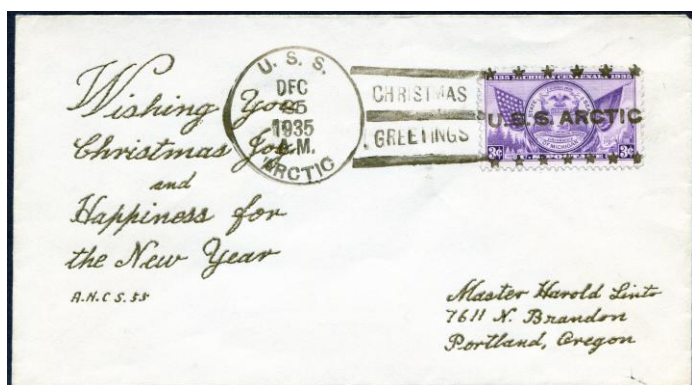 Wishing You
Christmas Joy
and
Happiness for
the New Year
A.H.C S. 55
U. S. S.
DEC
25
1935
M.
ARCTIC
CHRISTMAS
GREETINGS
1835 MICHIGAN CENTENARY 1935
U.S.S. ARCTIC
3¢ 3¢
Master Harold Linto
7611 N. Brandon
Portland, Oregon